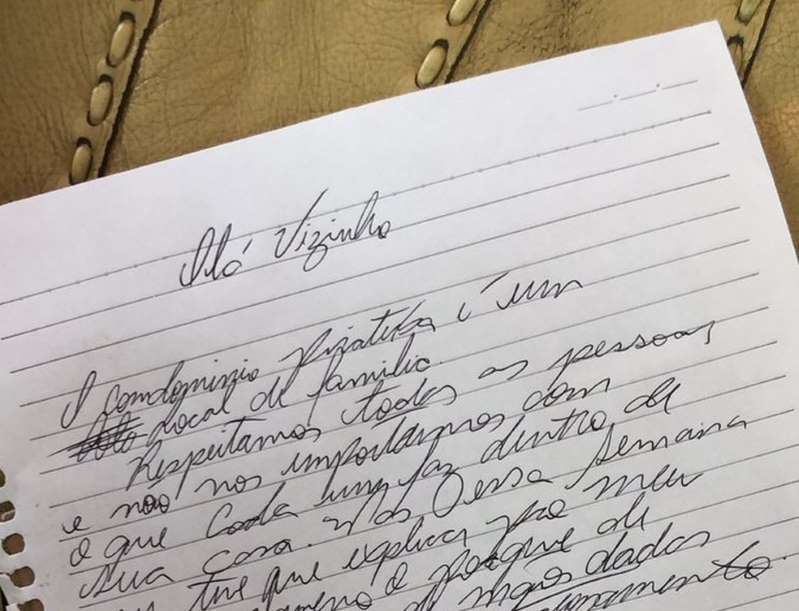 Alô Vizinho
O condominio piratiba é um
local de familia.
Respeitamos todas as pessoas
e não nos importamos com
o que cada um faz dentro de
sua casa. Mas essa semana
tive que explicar pro meu
o porque de
mãos dadas